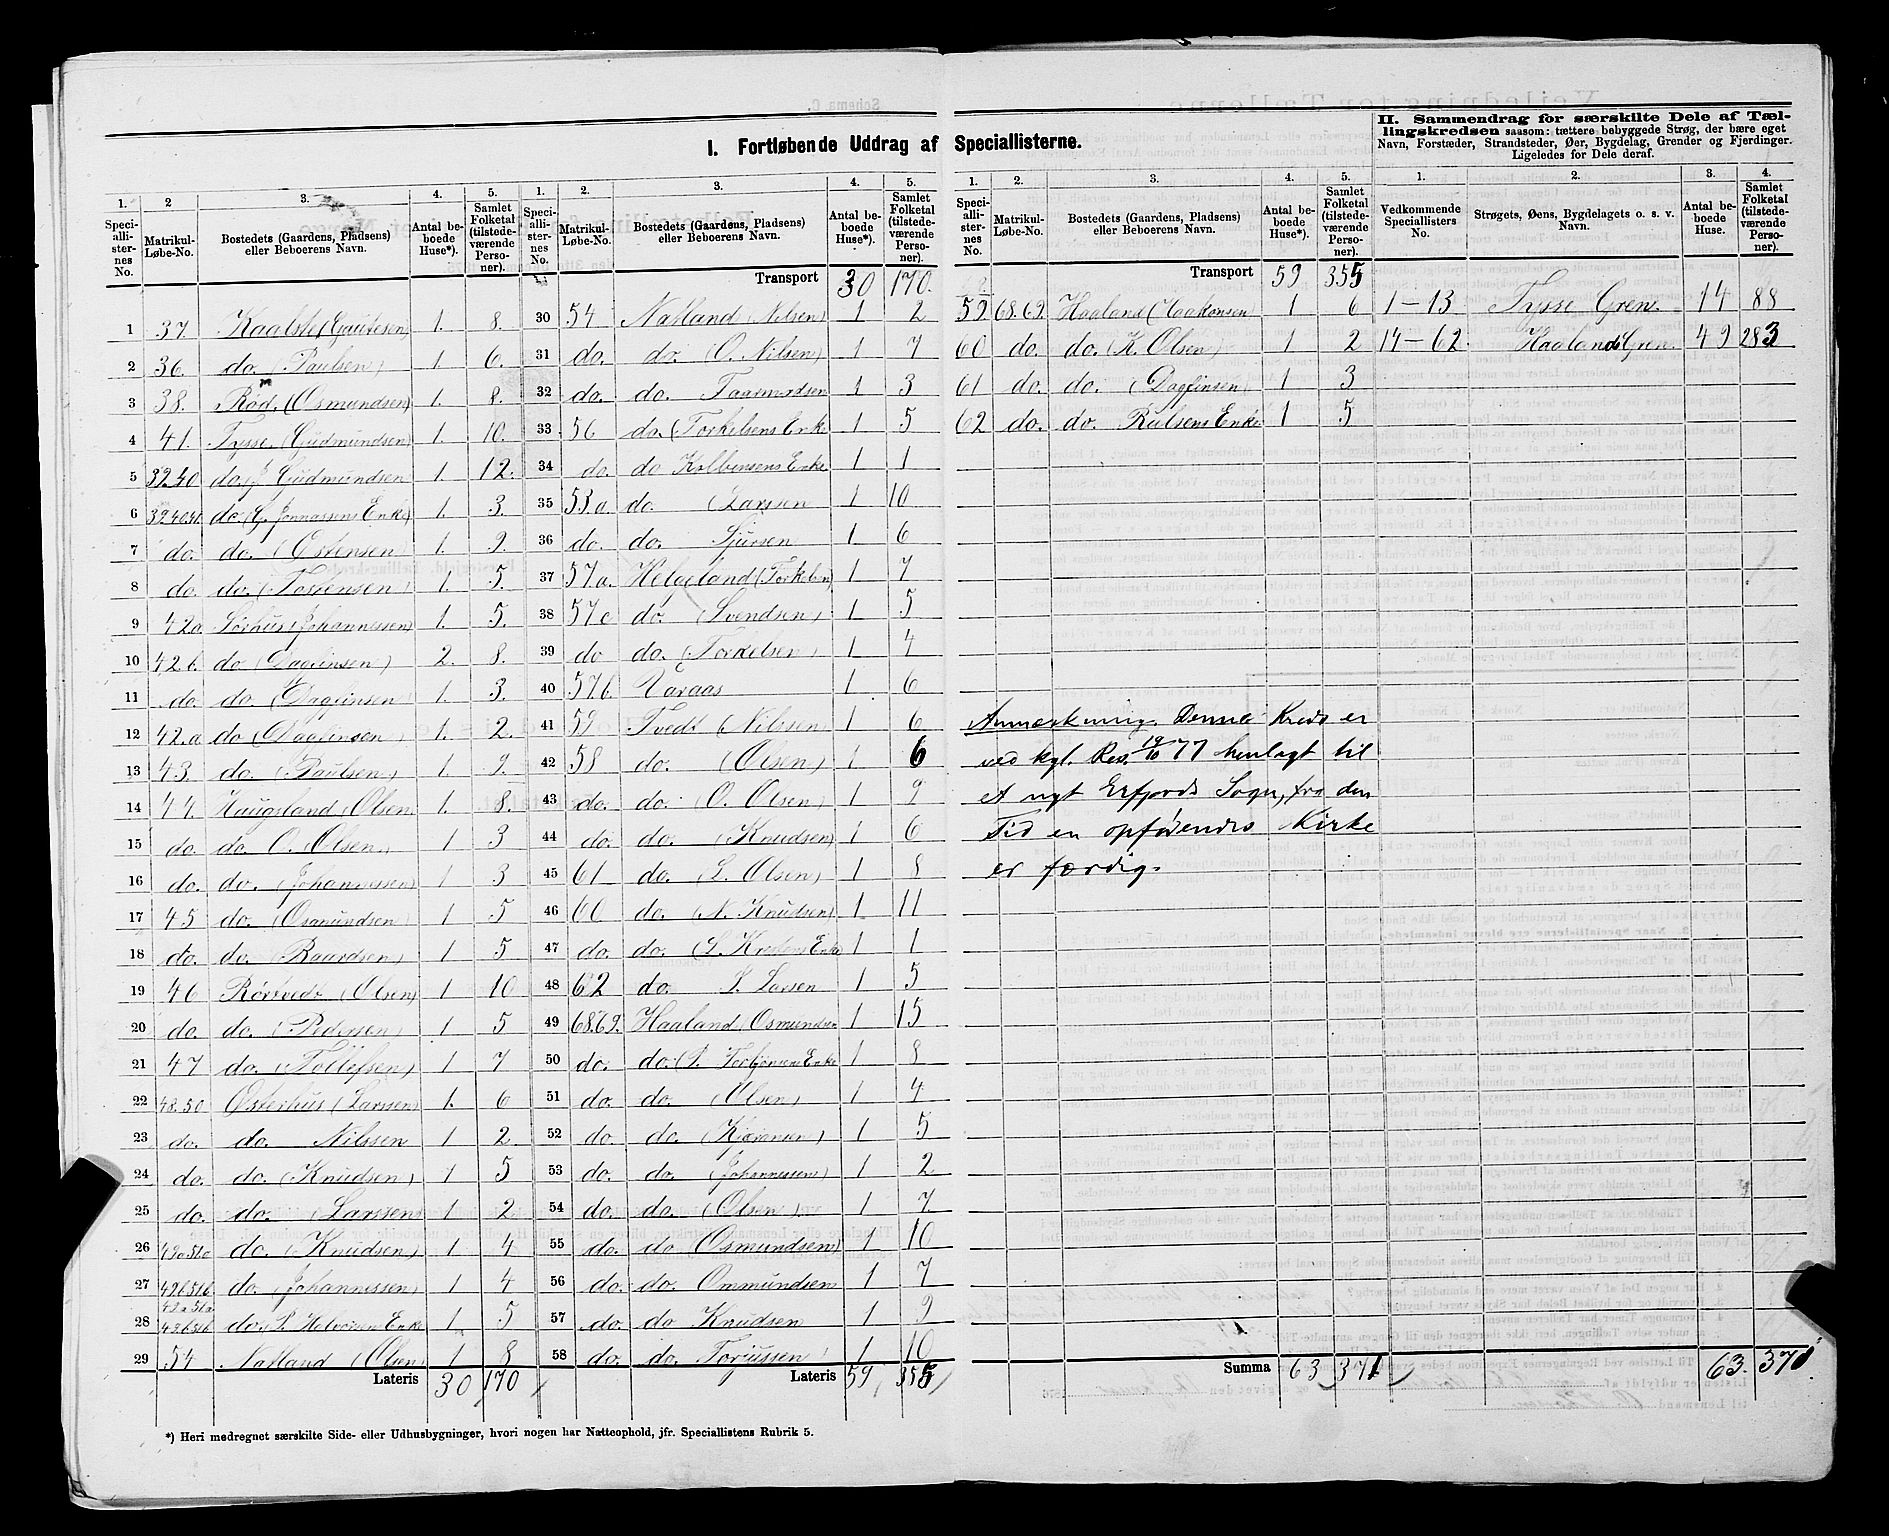 I. Fortløbende Uddrag af Speciallisterne.
II. Sammendrag for særskilte Dele af Tællingskredsen saasom: tættere bebyggede Strøg, der bære eget Navn, Forstæder, Strandsteder, Øer, Bygdelag, Grender og Fjerdinger. Ligeledes for Dele deraf.
1. 2 3. 4. 5. 1. 2. 3. 4. 5. 1. 2. 3. 4. 5. 1. 2. 3. 4.
Speciallisternes No. Matrikul-Løbe-No. Bostedets (Gaardens, Pladsens) eller Beboerens Navn. Antal beboede Huse*). Samlet Folketal (tilstedeværende Personer).
Speciallisternes No. Matrikul-Løbe-No. Bostedets (Gaardens, Pladsens) eller Beboerens Navn. Antal beboede Huse*). Samlet Folketal (tilstedeværende Personer).
Speciallisternes No. Matrikul-Løbe-No. Bostedets (Gaardens, Pladsens) eller Beboerens Navn. Antal beboede Huse*). Samlet Folketal (tilstedeværende Personer).
Vedkommende Speciallisters No. Strøgets, Øens, Bygdelagets o. s. v. Navn. Antal beboede Huse. Samlet Folketal (tilstedeværende Personer).
1 37. 1. 8.
2 36. do. (Paulsen) 1. 6.
3 38. Rød. (Osmundsen) 1. 8.
4 41. Tysse (Gudmundsen) 1. 10.
5 39.40 do. J. Gudmundsen 1. 12.
6 39.40.41. do. (G. Jonnassens Enke) 1. 3.
7 do. do. (Ostensen 1. 9.
8 do. do. (Tostensen) 1. 5.
9 42a Sørhus (Johannessen) 1. 5.
10 42.b. do (Dagfinsen) 2. 8.
11 do do. (Dagfinsen 1. 3.
12 42.a do (Dagfinsen) 1. 2.
13 43. do. (Paulsen) 1. 9.
14 44. Haugeland (Olsen. 1. 8.
15 do. do. O. Olsen) 1 3
16 do. do. (Johannessen) 1 3
17 45 do. (Osmundsen) 1 5
18 do. do. (Baardsen) 1 5
19 46 Rørtvedt (Olsen) 1 10
20 do. do. (Pedersen) 1 5
21 47 do. (Tollefsen) 1 7
22 48.50 Østerhus (Larssen) 1. 6
23 do. do. Nilssen 1 2
24 do. do. (Knudsen) 1 5
25 do. do. (Larssen) 1 2
26 49a51a do. (Knudsen) 1 4
27 49b51b do. (Johannessen) 1 4
28 49a51a 49b51b do. 1 5
29 54 Natland (Olsen) 1 8
Lateris 30 170
Transport 30 170.
30 54 Natland (Nilsen) 1 2
31 do. do. (O. Nilsen) 1 7
32 do. do. 1 3
33 56 do. (Torkelsens Enke 1 5
34 do. do Kolbensens Enke 1 1
35 53.a do (Larssen 1 10
36 do. do. Sjursen 1 6
37 57.a. Helgeland (Torkelsen) 1 7
38 57c do. (Svendsen) 1 5
39 do do. (Torkelsen) 1 4
40 57b Varaas 1 6
41 59 Tvedt (Nilssen 1 6
42 58 do. (Olsen) 1 6
43 do. do. (O. Olsen) 1 9
44 do. do. (Knudsen) 1 6
45 61 do. (L. Olsen) 1 8
46 60 do. (N. Knudsen) 1 11
47 do. do. 1 1
48 62 do. L. Larsen 1 5
49 68.69. Haaland (Osmundsen 1 15
50 do. do. 1 8
51 do. do. (Olsen) 1 4
52 do. do. 1 5
53 do. do. (Johannessen) 1 2
54 do. do. (Olsen). 1 7
55 do. do (Osmundsen) 1 10
56 do. do. Ommundsen 1 7
57 do. do Knudsen 1 9
58 do. do. Torjussen 1 10
Lateris 59 355
Transport 59 355
59 68.69. Haaland (Haakonsen 1 6
60 do. do. (K. Olsen) 1 2
61 do do. (Dagfinsen) 1 3
62 do. do. 1 5
Anmærkning. Denne Kreds er
ved kgl. Res. 19/10 77 henlagt til
et nyt Erfjords Sogn, fra den
Tid en opførendes Kirke
er færdig.
Summa 63 371
1-13 Tysse Gren. 14 88
14-62. Haalands Gren 49 283
63. 371.
*) Heri medregnet særskilte Side- eller Udhusbygninger, hvori nogen har Natteophold, jfr. Speciallistens Rubrik 5.